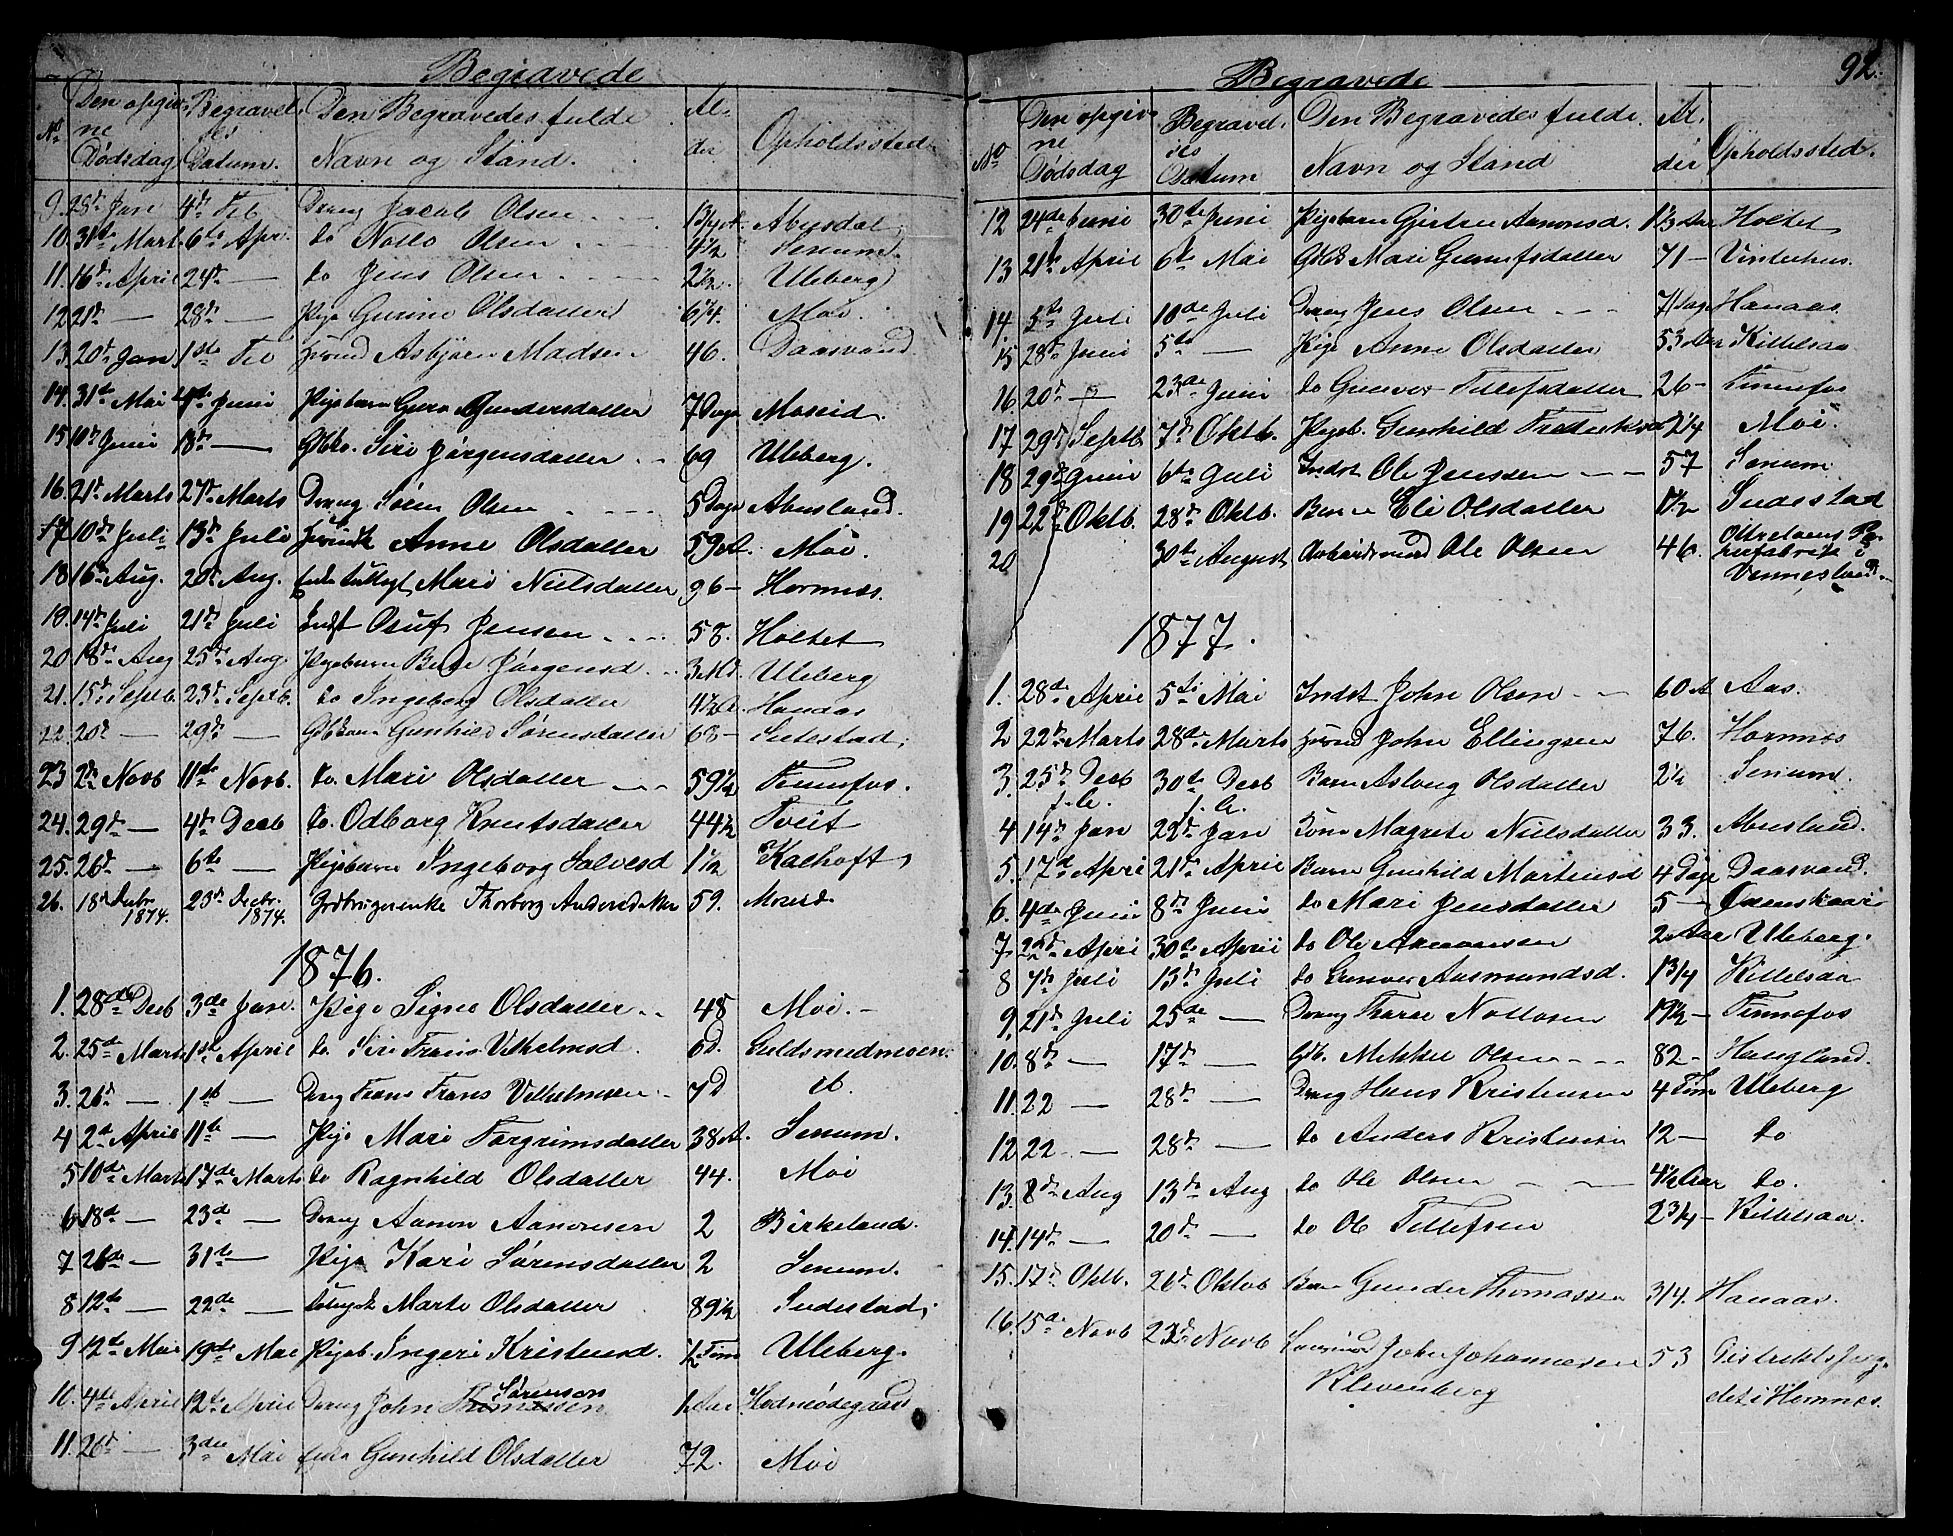 Begravede
No
Den opgiv-
ne
Dødsdag
Begravel-
ses
Datum.
Den Begravedes fulde
Navn og Stand.
Al-
der
Opholdssted.
9. 28de Jan 4de Feb Dreng Jacob Olsen 1 3/4 A. Abusdal.
10. 31te Mart 6te Apr. do Notto Olsen 4 1/2 Senum.
11. 16de April 24de — do Jens Olsen 2 1/2 Uleberg
12 21de — 28de — Pige Gunne Olsdatter 6 1/4. Moi.
13. 20de Jan 1ste Feb Asbjørn Madsen 46. Daasvand.
14. 31te Mai 4de Juni Pigebarn Guro Gundersdatter 7 Dage Moseid.
15 10de Juni 18de — Gbko. Siri Jørgensdatter 69 Uleberg.
16. 21de Marts 27de Marts Dreng Søren Olsen 5 Dage Abusland.
17 10de Juli 13de Juli Anne Olsdatter 59 A. Moi.
18 16de Aug. 20de Aug. Enke Mari Nielsdatter 96 — Hornnes.
19. 14de Juli 21de Juli Indst Osuf Jensen 58. Holtet
20. 18de Aug 25de Aug. Pigebarn Berte Jørgensd 3 Md. Uleberg
21. 15de Septb. 23de Septb. do Ingeborg Olsdatter 4 1/2 A. Hanaas
22. 20de — 29de — Gbkone Gunhild Sørensdatter 68 — Sutestad.
23 2de Novb 11te Novb. do. Mari Olsdatter 59 1/2 Fennefos.
24. 29de — 4de Decb do. Odborg Knutsdatter 44 1/2 Tveit
25. 26de — 6te — Pigebarn Ingeborg Salvesd 1 1/2 Kalhoft
26. 18de Decbr. 1874. 23de Decbr. 1874. Grdbrugerenke Thorborg Andersdatter 59. Moseid.
1876.
1. 28de Decb 3de Jan. Pige Signe Olsdatter 48 Moi. —
2. 25de Marts 1ste April do Siri Frans Vilhelmsd. 6 d. Guldsmedmoen.
3. 26de — 1ste — Dreng Frans Frans Vilhelmsen 7 D
4 2de April 11te — Pige Mari Torgrimsdatter 38 A. Senum.
5 10de Marts 17de Marts do Ragnhild Olsdatter 44. Moi
6 18de — 23de — Dreng Aanon Aanonsen 2 Birkeland.
7 26de — 31te — Pige Kari Sørensdatter 2 Senum.
8 12te — 22de — Marte Olsdatter 89 1/2 Sudestad.
9 12te Mai 19de Mai Pigeb. Ingeri Kristensd. 1/2 Time Uleberg.
10. 4de April 12te April Dreng John Thomassen Sørenson 1 Aar Hodneødegaard
11. 26de — 3die Mai Gunhild Olsdatter 72. Moi
92.
Begravede
No
Den opgiv-
ne
Dødsdag
Begravel-
ses
Datum
Den Begravedes fulde
Navn og Stand
Al-
der
Opholdssted.
12 24de Juni 30te Juni Pigebarn Gjertru Aanonsd. 1 1/3 Aar Holtet
13 21de April 6te Mai Gbk Mari Gunufsdatter 71 — Vinterhus.
14. 5te Juli 10de Juli Dreng Jens Olsen 7 Dage Hanaas.
15 28de Juni 5te — Pige Anne Olsdatter 53 Aar Killelsaa
16 20de — 23de Juni do Gunvor Tellefsdatter 26 — Fennefos
17 29de Septb 7de Oktb. Pigeb. Gunhild Frederiksd 2 1/4 Moi.
18 29de Juni 6te Juli Indst Ole Jenssen 57 Senum
19 22de Oktb. 28de Oktb. Barn Eli Olsdatter 1 1/2 Sudestad
20 30te August Arbeidsmand Ole Olsen 46. Otterelvens Pa-
pirfabrik i
Vennesland.
1877.
1. 28de April 5te Mai Indst John Olsen 60 A Aas.
2 22de Marts 28de Marts John Ellingsen 76. Hornnes
3. 25de Decb f. A. 30te Decb f. A. Barn Aslaug Olsdatter 2 1/2 Senum.
4 14de Jan 22de Jan Kone Magrete Nielsdatter 33. Abusland.
5. 17de April 21de April Barn Gunhild Martensd 4 Dage Daasvand.
6. 4de Juni 8de Juni do Mari Jensdatter 5 —
7 22de April 30te April do Ole 2 Aar Uleberg.
8 7de Juli 13de Juli do Gunvor Aasmundsd. 1 3/4 Killelsaa
9. 21de Juli 25de — Dreng Taral Nottosen 19 1/2 — Fennefos
10. 8de — 17de — Gb. Mikkel Olsen 82 — Haugland.
11. 22 — 28de — Dreng Hans Kristensen 4 Tim Uleberg
12 22 — 28de — do Anders Kristensen 12 — do
13. 8de Aug 13de Aug do Ole Olsen 4 1/2 Aar do.
14. 14de — 20de — do Ole Tellefsen 2 3/4 — Killelsaa.
15. 17de Oktb. 26de Oktob Barn Gunder Thomassen 3/4. Hanaas.
16. 15de Novb 23de Novb John Johannesen 53 Distriktsfæng-
Klevenberg slet i Hornnes.